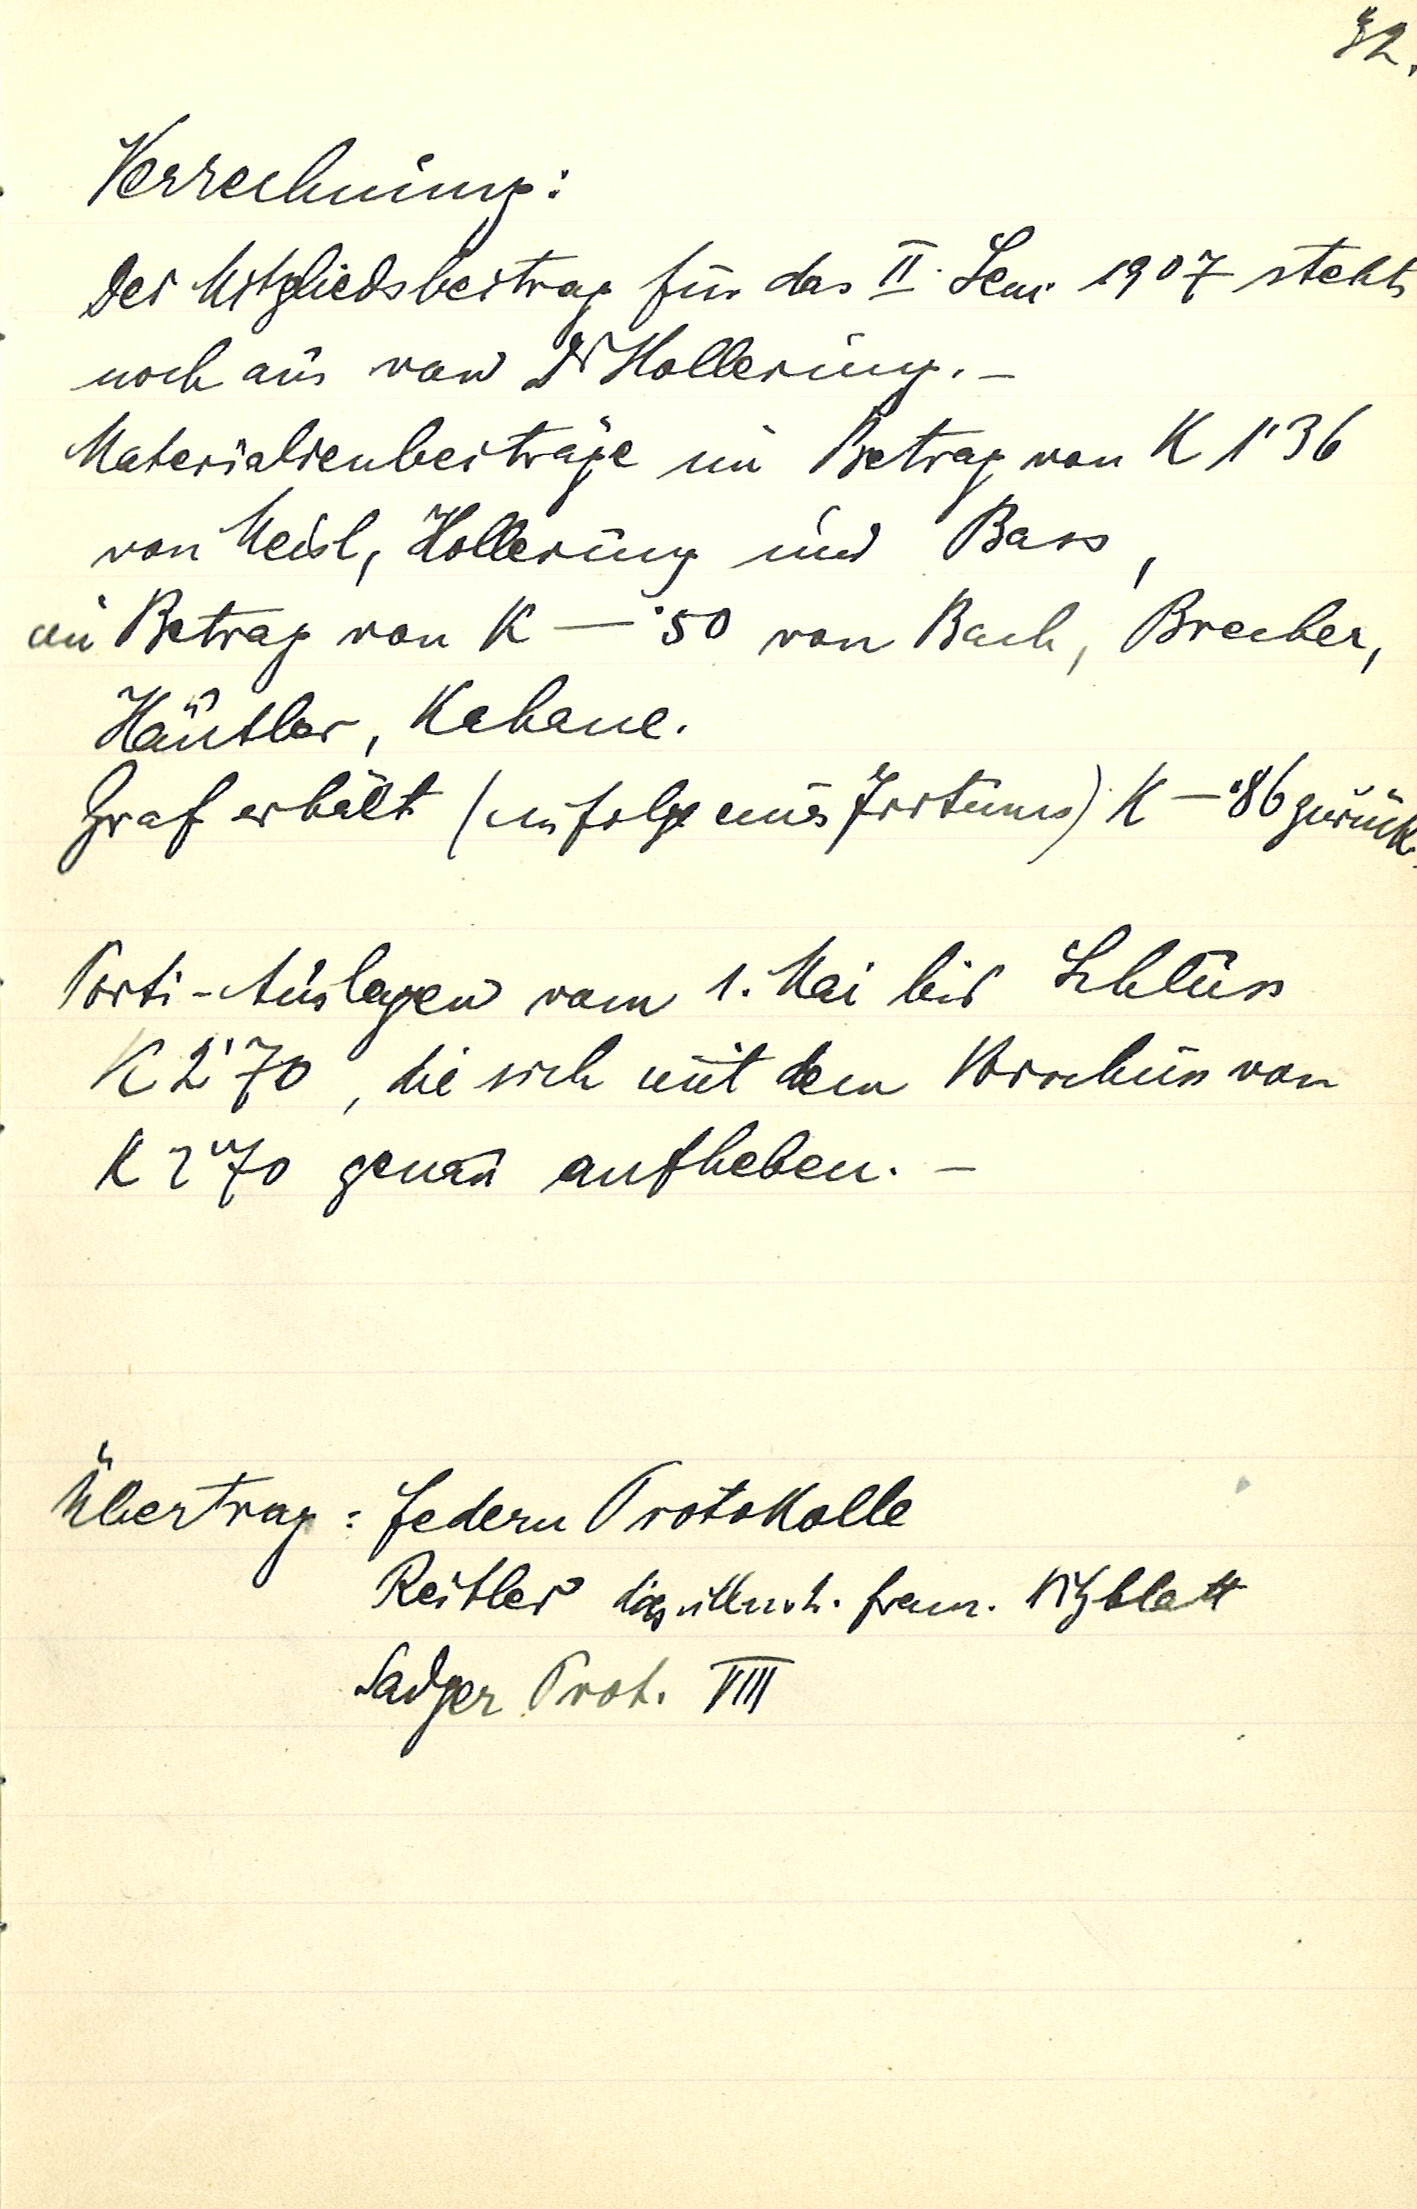 32.
Verrechnung:
Der Mitgliedsbeitrag für das II. Sem. 1907 steht
noch aus von Dr Hollerung. –
Materialienbeiträge im Betrag von K 1·36
von Meisl, Hollerung und Bass,
im Betrag von K —·50 von Bach, Brecher,
Häutler, Kahane.
Graf erhält (infolge eines Irrtums) K —·86 zurück.
Porti-Auslagen vom 1. Mai bis Schluss
K 2·70, die sich mit dem Vorschuss von
K 2·70 genau aufheben. –
Übertrag: Federn Protokolle
Reitler
Sadger Prot. VIII